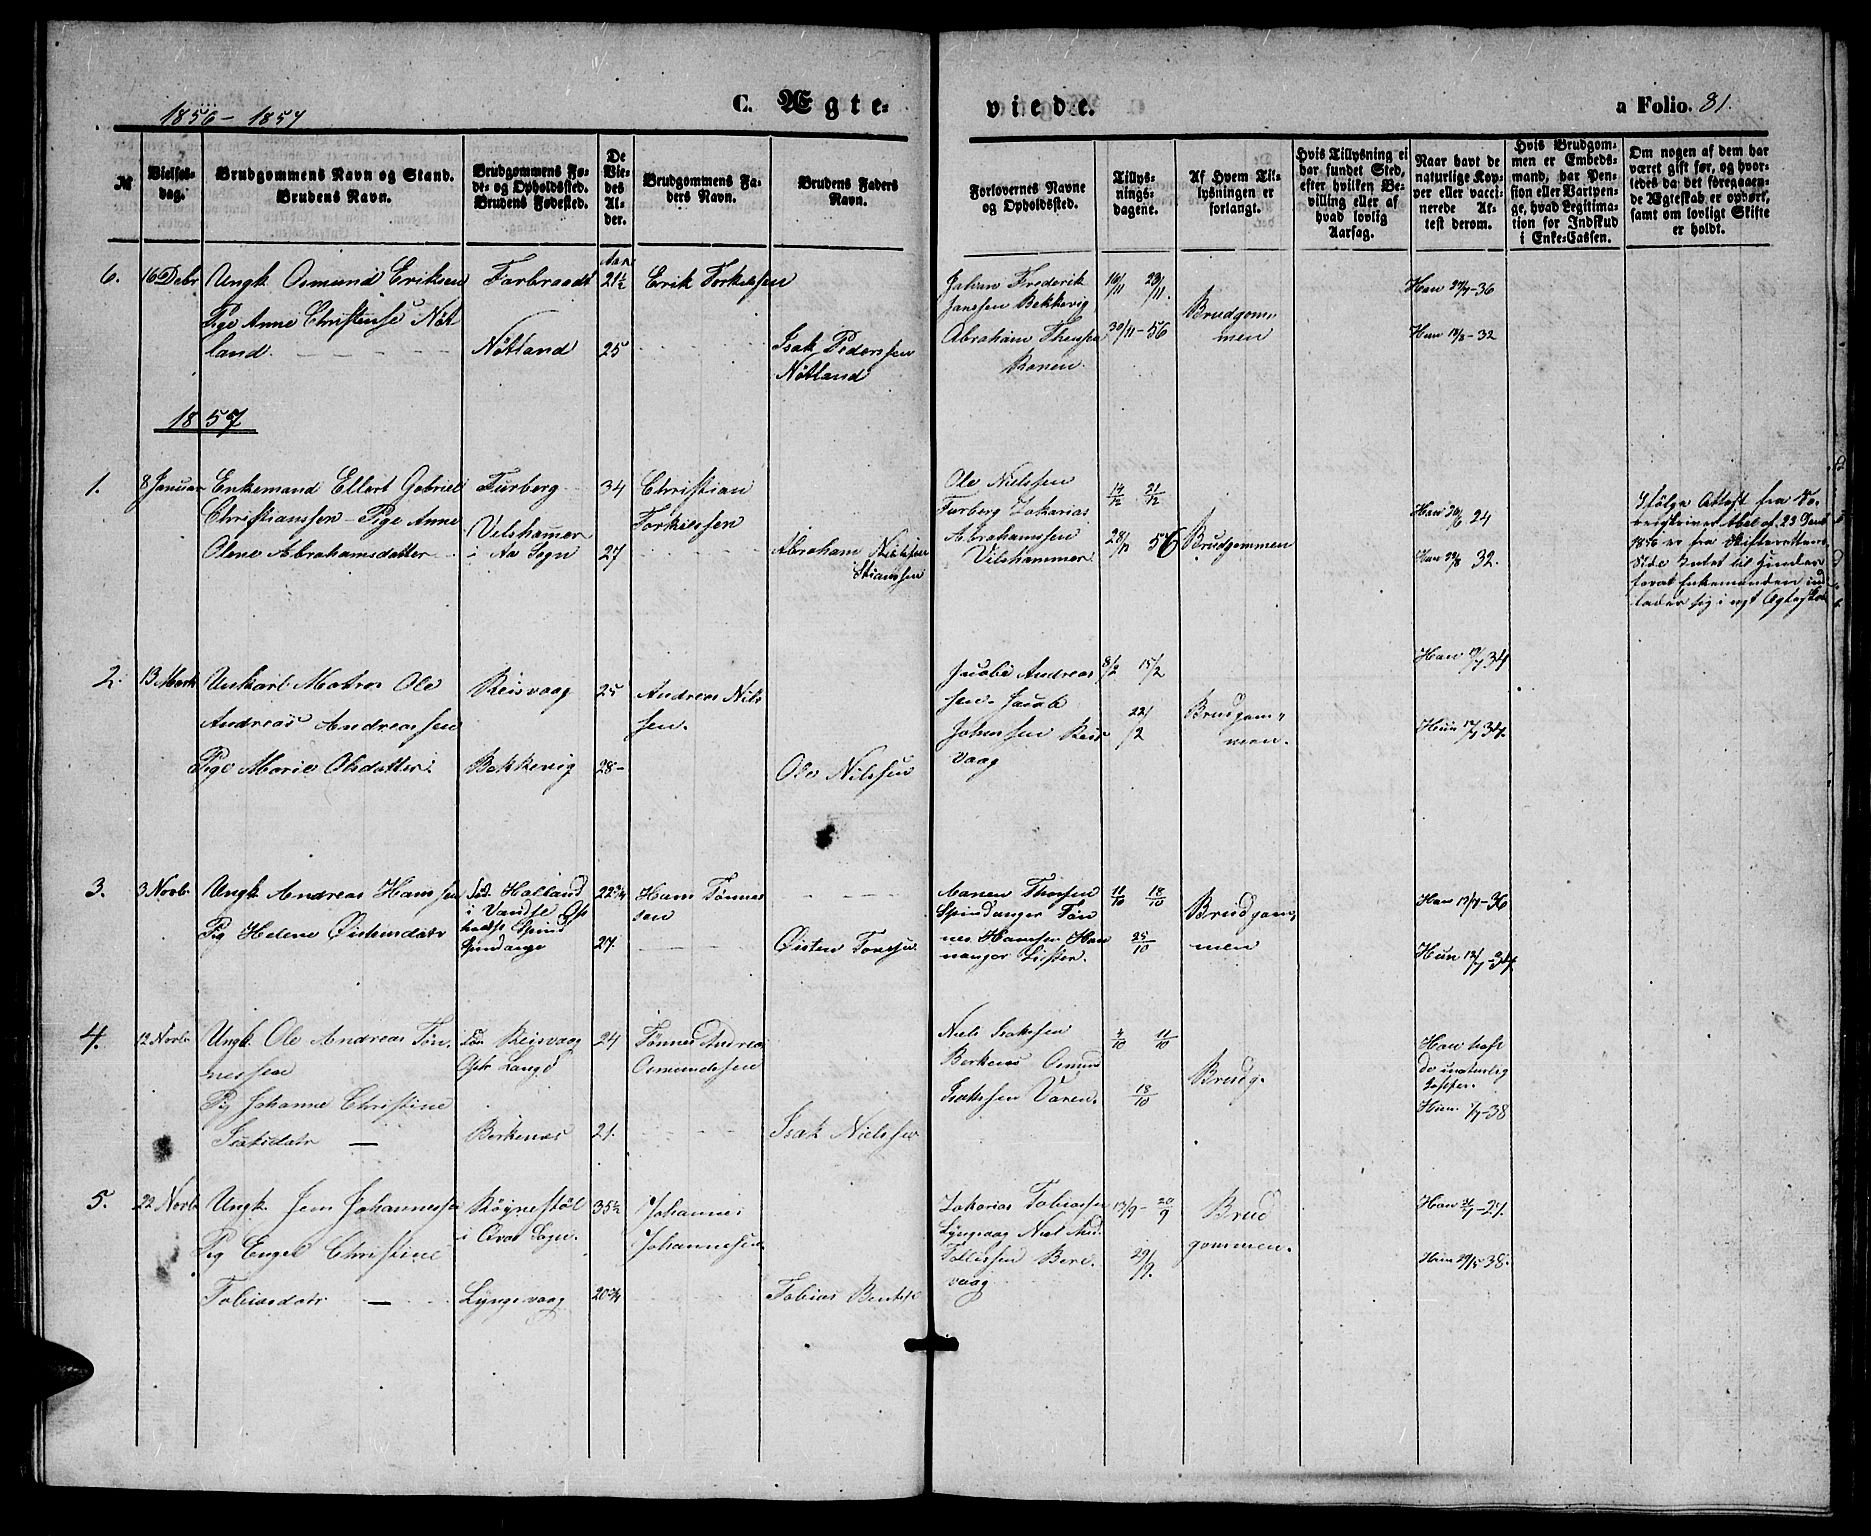 1856-1857
C. Ægte-
viede.
a Folio. 81.
№
Vielses-
dag.
Brudgommens Navn og Stand.
Brudens Navn.
Brudgommens Fø-
de- og Opholdssted.
Brudens Fødested.
De
Vie-
des
Al-
der.
Brudgommens Fa-
ders Navn.
Brudens Faders
Navn.
Forlovernes Navne
og Opholdssted.
Tillys-
nings-
dagene.
Af Hvem Til-
lysningen er
forlangt.
Hvis Tillysning ei
har fundet Sted,
efter hvilken Be-
villing eller af
hvad lovlig
Aarsag.
Naar havt de
naturlige Kop-
per eller vacci-
nerede At-
test derom.
Hvis Brudgom-
men er Embeds-
mand, har Pen-
sion eller Vartpen-
ge, hvad Legitima-
tion for Indskud
i Enke-Cassen.
Om nogen af dem har
været gift før, og hvor-
ledes da det foregaaen-
de Ægteskab er ophørt,
samt om lovligt Skifte
er holdt.
6. 16 Debr Ungk. Osmund Eriksen
Pige Anne Christense Nöt-
land.
Nötland
Aar
21½
25
Erik Torkelssen
Isak Pederssen
Nötland
Johan Frederik
Janssen Bekkevig
Abraham
16/11 23/11.
30/11-56
Brudgom-
men
Han
Hun
1857
1. 8 Januar Enkemand Ellert Gabriel
Christianssen - Pige Anne
Olene Abrahamsdatter
Furberg
Velshamer
i Aa Sogn
34
27
Christian
Torkilssen
Abraham
Ole Nielssen
Furberg Zakarias
Abrahamssen
Vilshammer.
14/12 21/12
56
Brudgommen
Han 24
Hun 32.
Ifølge Attest fra
Abel af 22
1856 er fra Skifterettens
Side Intet til Hinder
for at Enkemanden ind
lader sig i nyt Ægteskab
2. 13 Marts Matros Ole
Andreas Andreassen
Pige Marie Olsdatter.
Reisvaag
Bekkevig
25
28-
Andreas Nils
sen.
Ole Nilssen
Jacob Andreas
sen. Jacob
Johnssen Reis
vaag
8/2 15/2
22/2
Brudgom-
men.
Han 34
Hun 34.
3. 3 Novbr Ungk. Andreas Hanssen
Pig Helene Öistensdatr
Fød. Halland
i Vandse
Spind
Spindanger
22¾
27.
Hans Tønnes
sen
Öisten Toressen
Manen Thorsen
Spindanger Tøn
nes Hanssen
Lister.
11/10 18/10
25/10
Brudgom-
men
Han -36
Hun -34
4. 12 Novbr Ungk. Ole Andreas Tøn-
nessen
Pig Johanne Christine
Isaksdatr
Fød Reisvaag
Opt Langö
Berkenes
24
21.
Tønnes Andreas
Osmundssen
Isak Nielssen
Niels Isakssen
Berkenes Osmund
Isakssen Varen.
4/10 11/10
18/10
Brudg.
Han havt
de naturlig
Kopper.
Hun -38
5. 22 Novbr Ungk. Jens Johannessen
Pig Engel Christine
Tobiasdatr
Röynestöl
i Sogn.
Lyngsvaag
35½
20¾
Johannes
Johannessen.
Tobias Bentsen
Zakarias Tobiassen
Lyngsvaag Niel
Tollissen Bere-
vaag
13/9 - 20/9
Brud
gommen.
Han -27.
Hun 29/5-38.